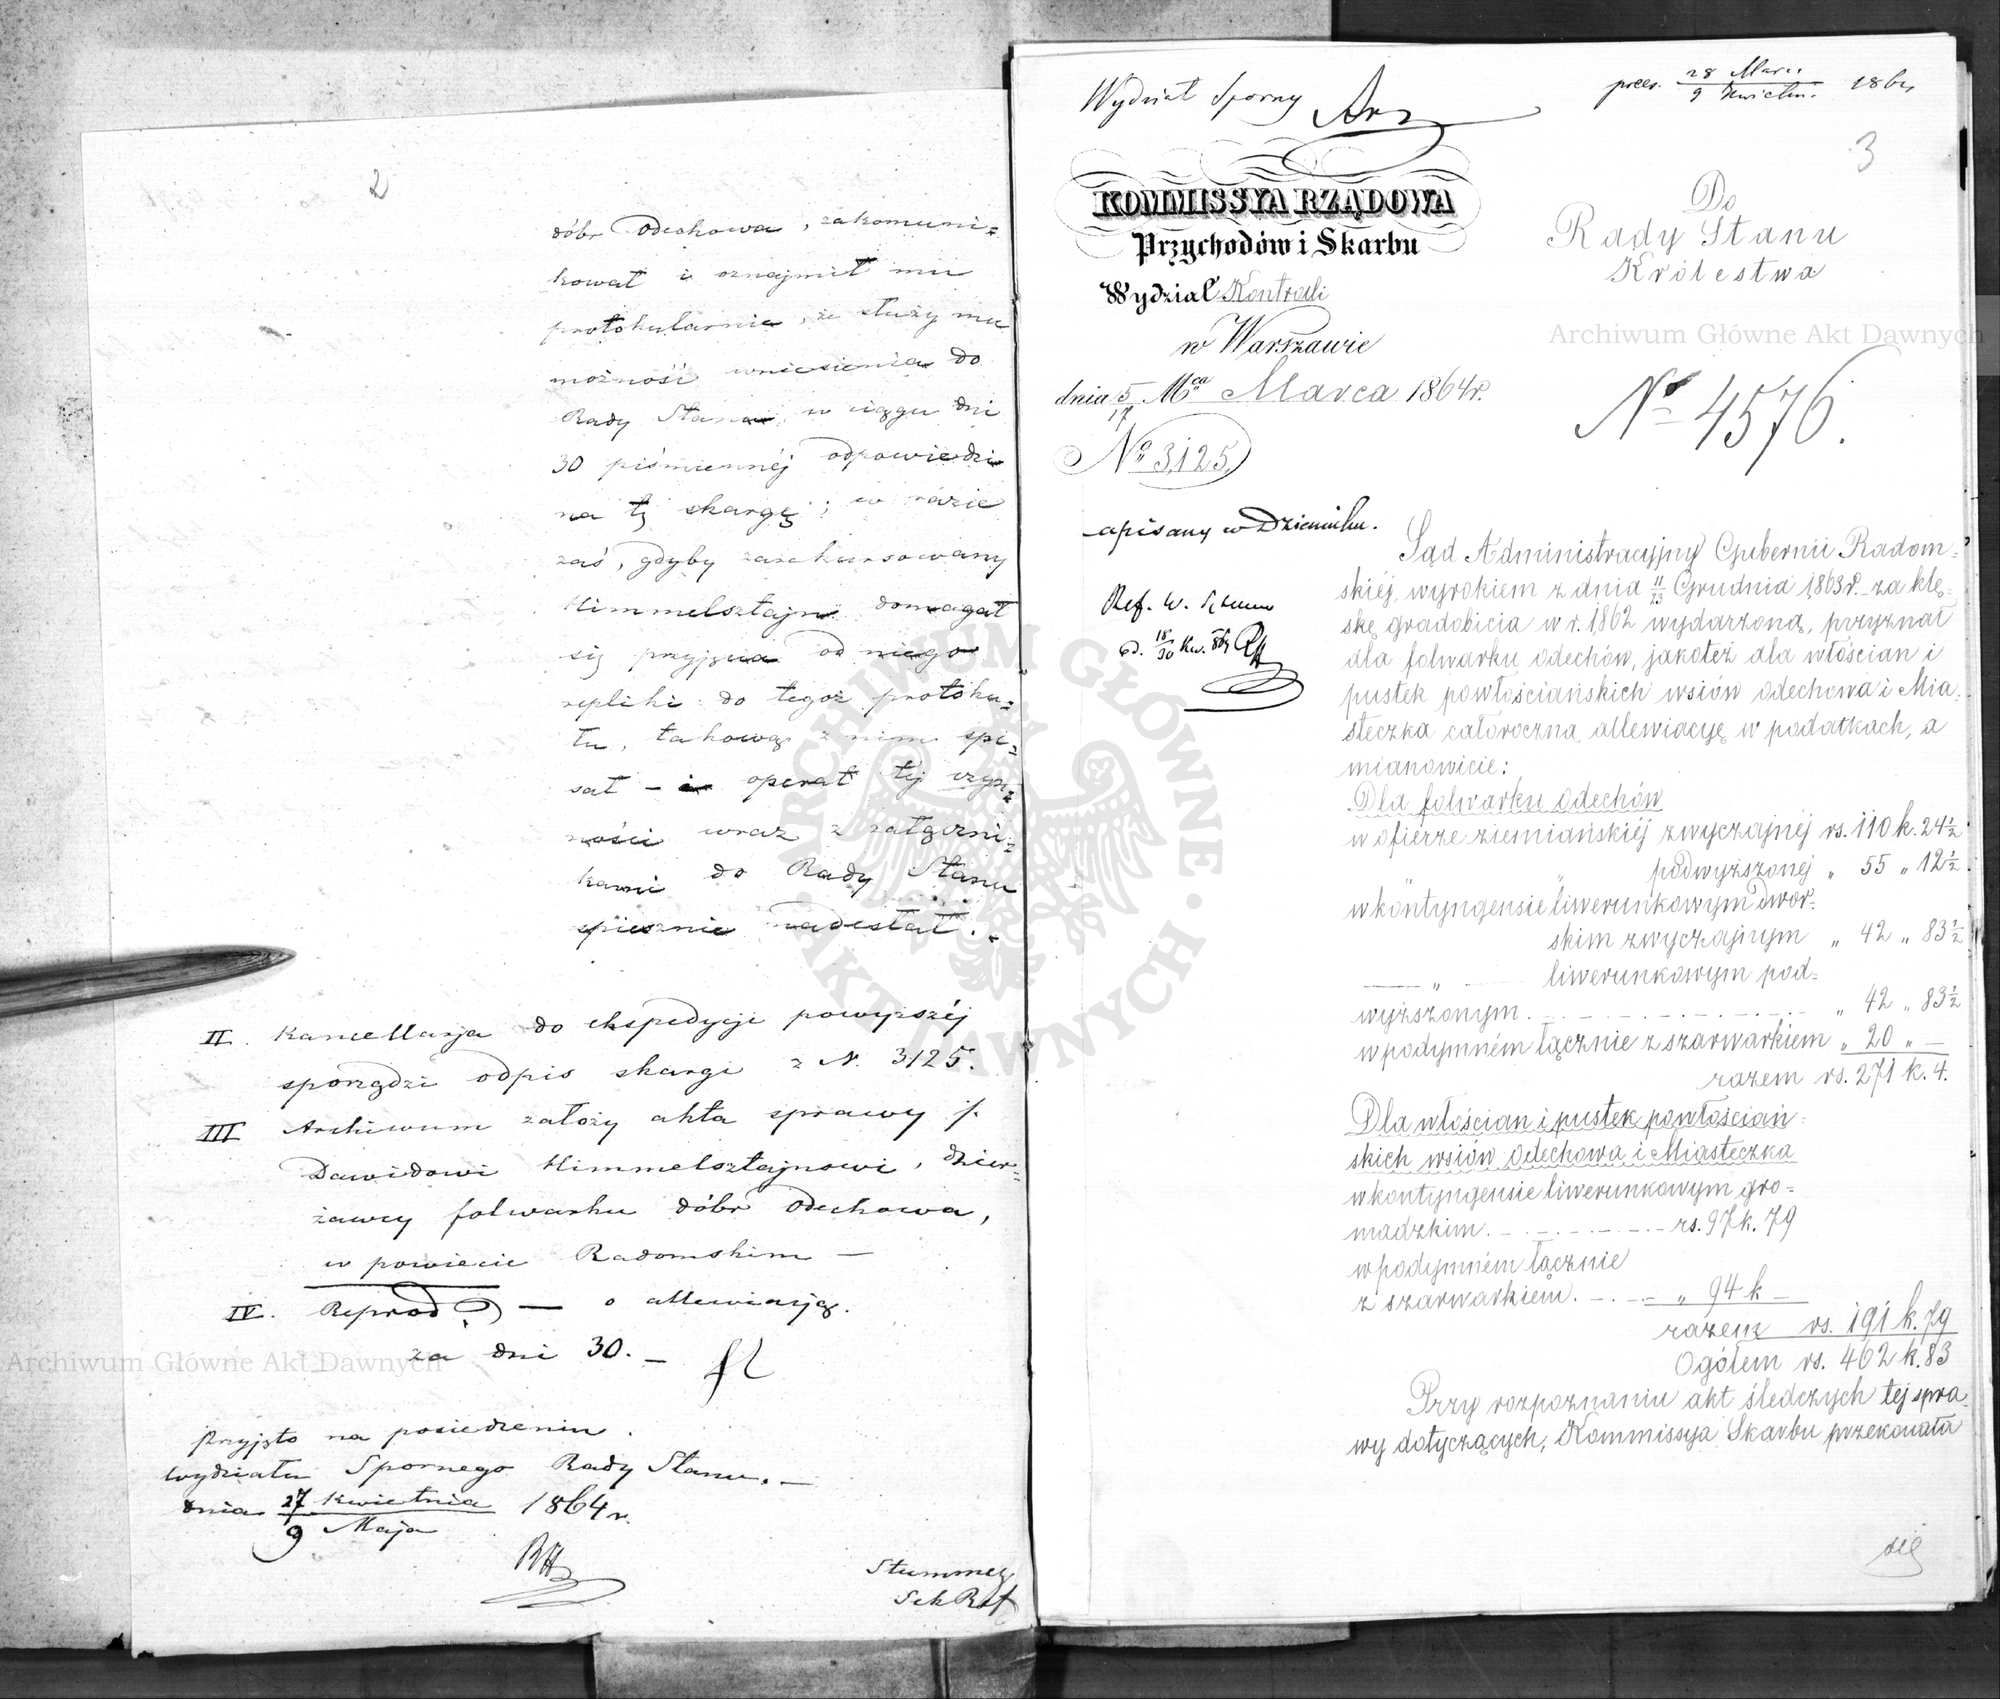 2
dóbr Odechowa, zakomuni=
kował i oznajmił mu
protokularnie, że służy mu
możność wniesienia do
Rady Stanu w ciągu dni
30 piśmiennéj odpowiedzi
na tę skargę; w razie
zaś, gdyby zaskarsowany
Himmelsztajn domagał
się przyjęcia od niego
repliki do tegoż protoku=
łu, takową z nim spi=
sał – i operat téj czyn=
ności wraz z załączni=
kami do Rady Stanu
spiesznie nadesłał. –
II. Kancellarja do ekspedycji powyższéj
sporządzi odpis skargi z N. 3125.
III Archiwum założy akta sprawy p.
Dawidowi Himmelsztajnowi, dzier=
żawcy folwarku dóbr Odechowa,
w powiecie Radomskim –
IV. Reprod. — o allewiację.
za dni 30. –
Przyjęto na posiedzeniu
Wydziału Spornego Rady Stanu. –
dnia 27 Kwietnia 1864 r.
9 Maja
Stummer
Sek Ref
Wydział Sporny
prez. 28 Marca 1864
9 Kwietn.
3
KOMMISSYA RZĄDOWA
Przychodów i Skarbu
Wydział Kontroli
w Warszawie
dnia 5/17 Mca Marca 1864 r.
No 3,125.
Do
Rady Stanu
Królestwa
No 4576.
apisany w Dzienniku.
Ref. W.
d. 18/30 Kw.
Sąd Administracyjny Gubernii Radom=
skiéj, wyrokiem z dnia 11/23 Grudnia 1863 r. za klę=
skę gradobicia w r. 1862 wydarzoną, przyznał
dla folwarku Odechów, jakoteż dla włościan i
pustek powłościańskich wsiów Odechowa i Mia=
steczka całoroczną allewiacyę w podatkach, a
mianowicie:
Dla folwarku Odechów
w ofierze ziemiańskiéj zwyczajnéj rs. 110 k. 24½
podwyższonéj " 55 " 12½
w kontyngensie liwerunkowym dwor=
skim zwyczajnym " 42 " 83½
— " — liwerunkowym pod=
wyższonym " 42 " 83½
w podymném łącznie z szarwarkiem " 20 " —
razem rs. 271 k. 4.
Dla włościan i pustek powłościań=
skich wsiów Odechowa i Miasteczka
w kontyngensie liwerunkowym gro=
madzkim. rs. 97 k. 79
w podymném łącznie
z szarwarkiem. " 94 k –
razem rs. 191 k. 79
Ogółem rs. 462 k. 83
Przy rozpoznaniu akt śledczych téj spra=
wy dotyczących, Kommissya Skarbu przekonała
się
Archiwum Główne Akt Dawnych
Archiwum Główne Akt Dawnych
ARCHIWUM GŁÓWNE · AKT DAWNYCH ·